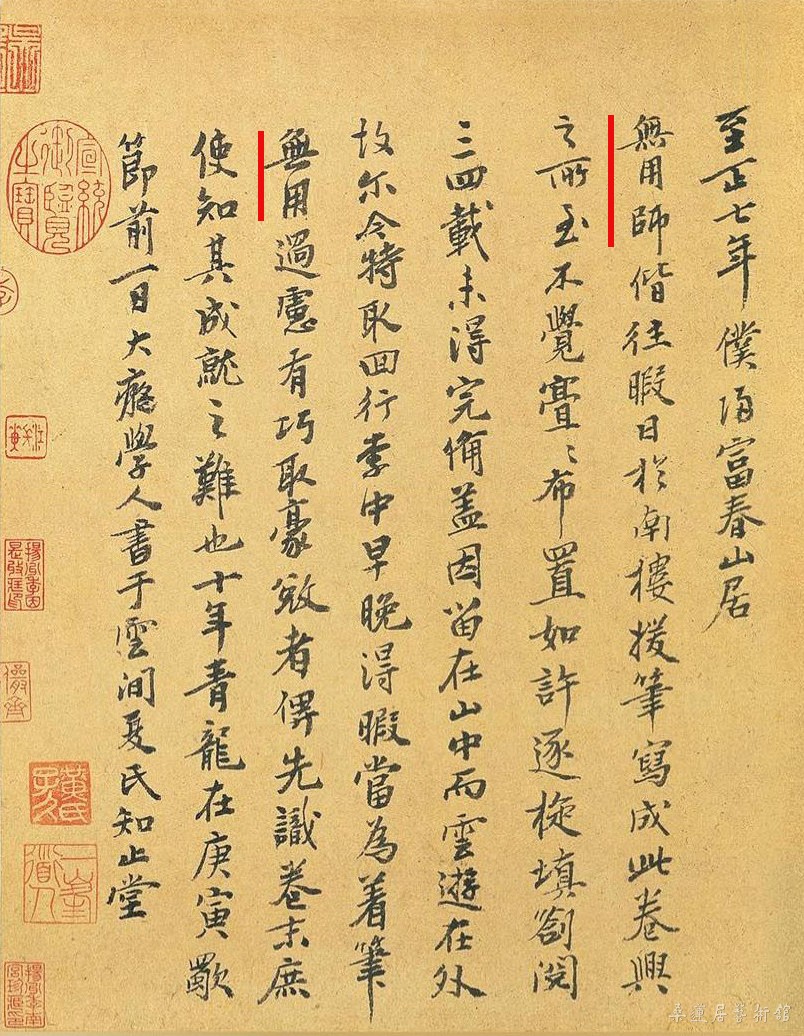 至正七年僕歸富春山居
無用師偕往暇日於南樓援筆寫成此卷興
之所至不覺亹〻布置如許逐旋填劄閱
三四載未得完備盖因留在山中而雲遊在外
故尔今特取回行李中早晚得暇當為着筆
無用過慮有巧取豪敚者俾先識卷末庶
使知其成就之難也十年青龍在庚寅歜
節前一日大癡學人書于雲間夏氏知止堂
宣統御覽之寶
儼齋
黃氏子久
一峯道人